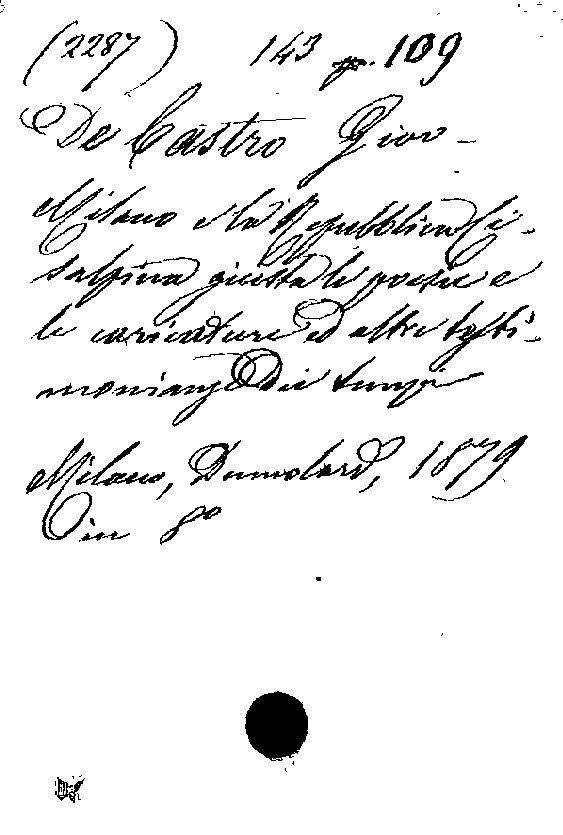 (2287) 143 p. 109
De Castro Giov-
Milano e la Repubblica Ci-
salpina giusta le poesie e
le caricature ed altre testi-
monianze dei tempi
Milano, Dumolard, 1879
in 8º